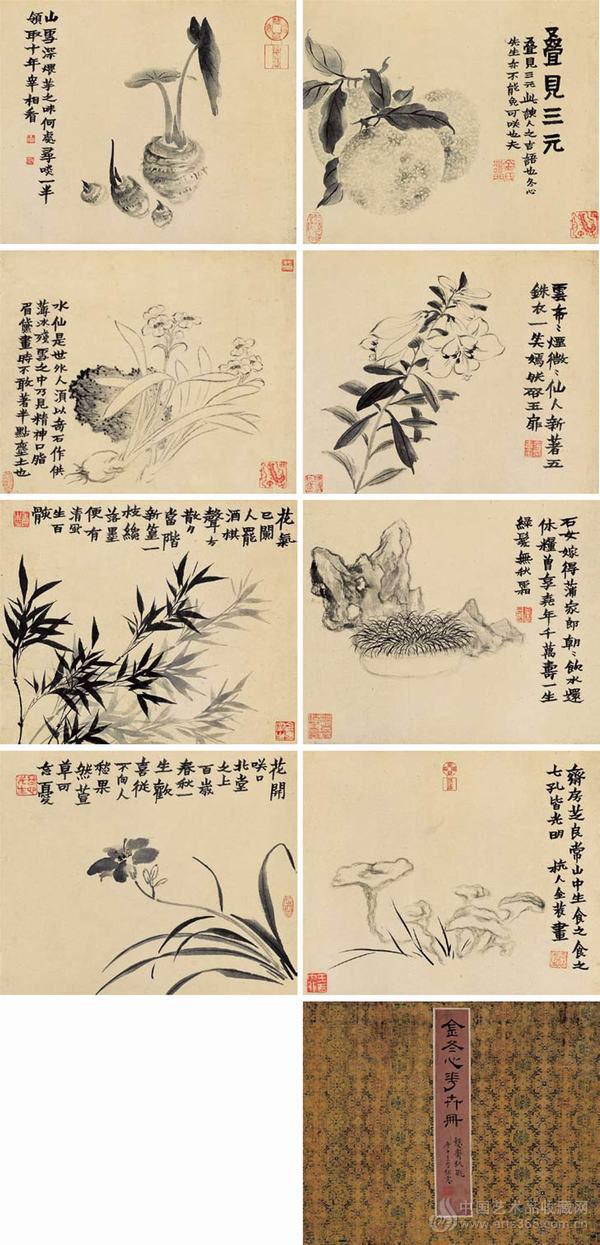 山雪深煨芋之味何處尋啖一半
領取十年宰相看
疊見三元
疊見三元此諛人之吉語也冬心
先生亦不能免可咲也夫
水仙是世外人須以奇石作供
薄冰殘雪之中乃見精神口脂
眉黛畫時不敢著半點塵土也
雲布〻煙微〻仙人新著五
銖衣一笑嫣然啓玉扉
花氣
已闌
人罷
酒棋
聲方
散
當階
新篁一
枝纔
落墨
便有
清風
生百
骸
石女嫁得蒲家郎朝〻飲水還
休糧曾享堯年千萬壽一生
綠髮無秋霜
花開
咲口
北堂
之上
百歲
春秋一
生歡
喜從
不向人
愁果
然萱
草可
忘憂
齋房芝良常山中生食之食之
七孔皆光明 杭人金農畫
金冬心花卉冊
中国艺术品收藏网
www.arts365.com.cn